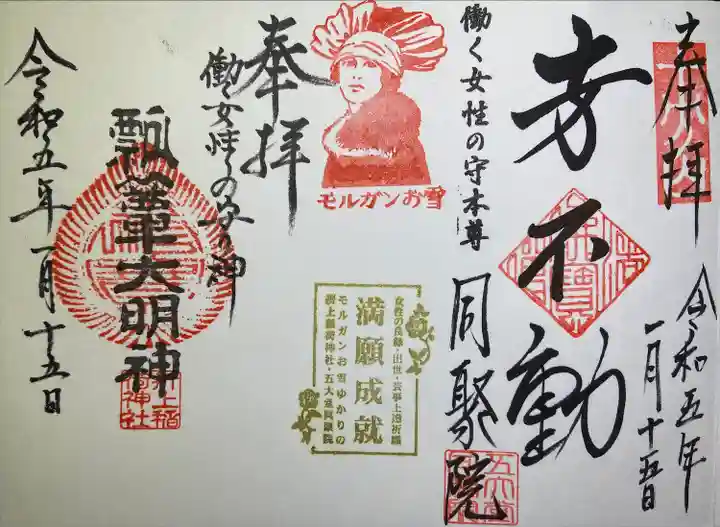 奉拝
令和五年
一月十五日
芳不動
働く女性の守本尊
同聚院
モルガンお雪
女性の良縁・出世・芸事上達祈願
満願成就
モルガンお雪ゆかりの
満上稲荷神社・五大堂同聚院
奉拝
働く女性の守り神
瓢箪大明神
令和五年一月十五日